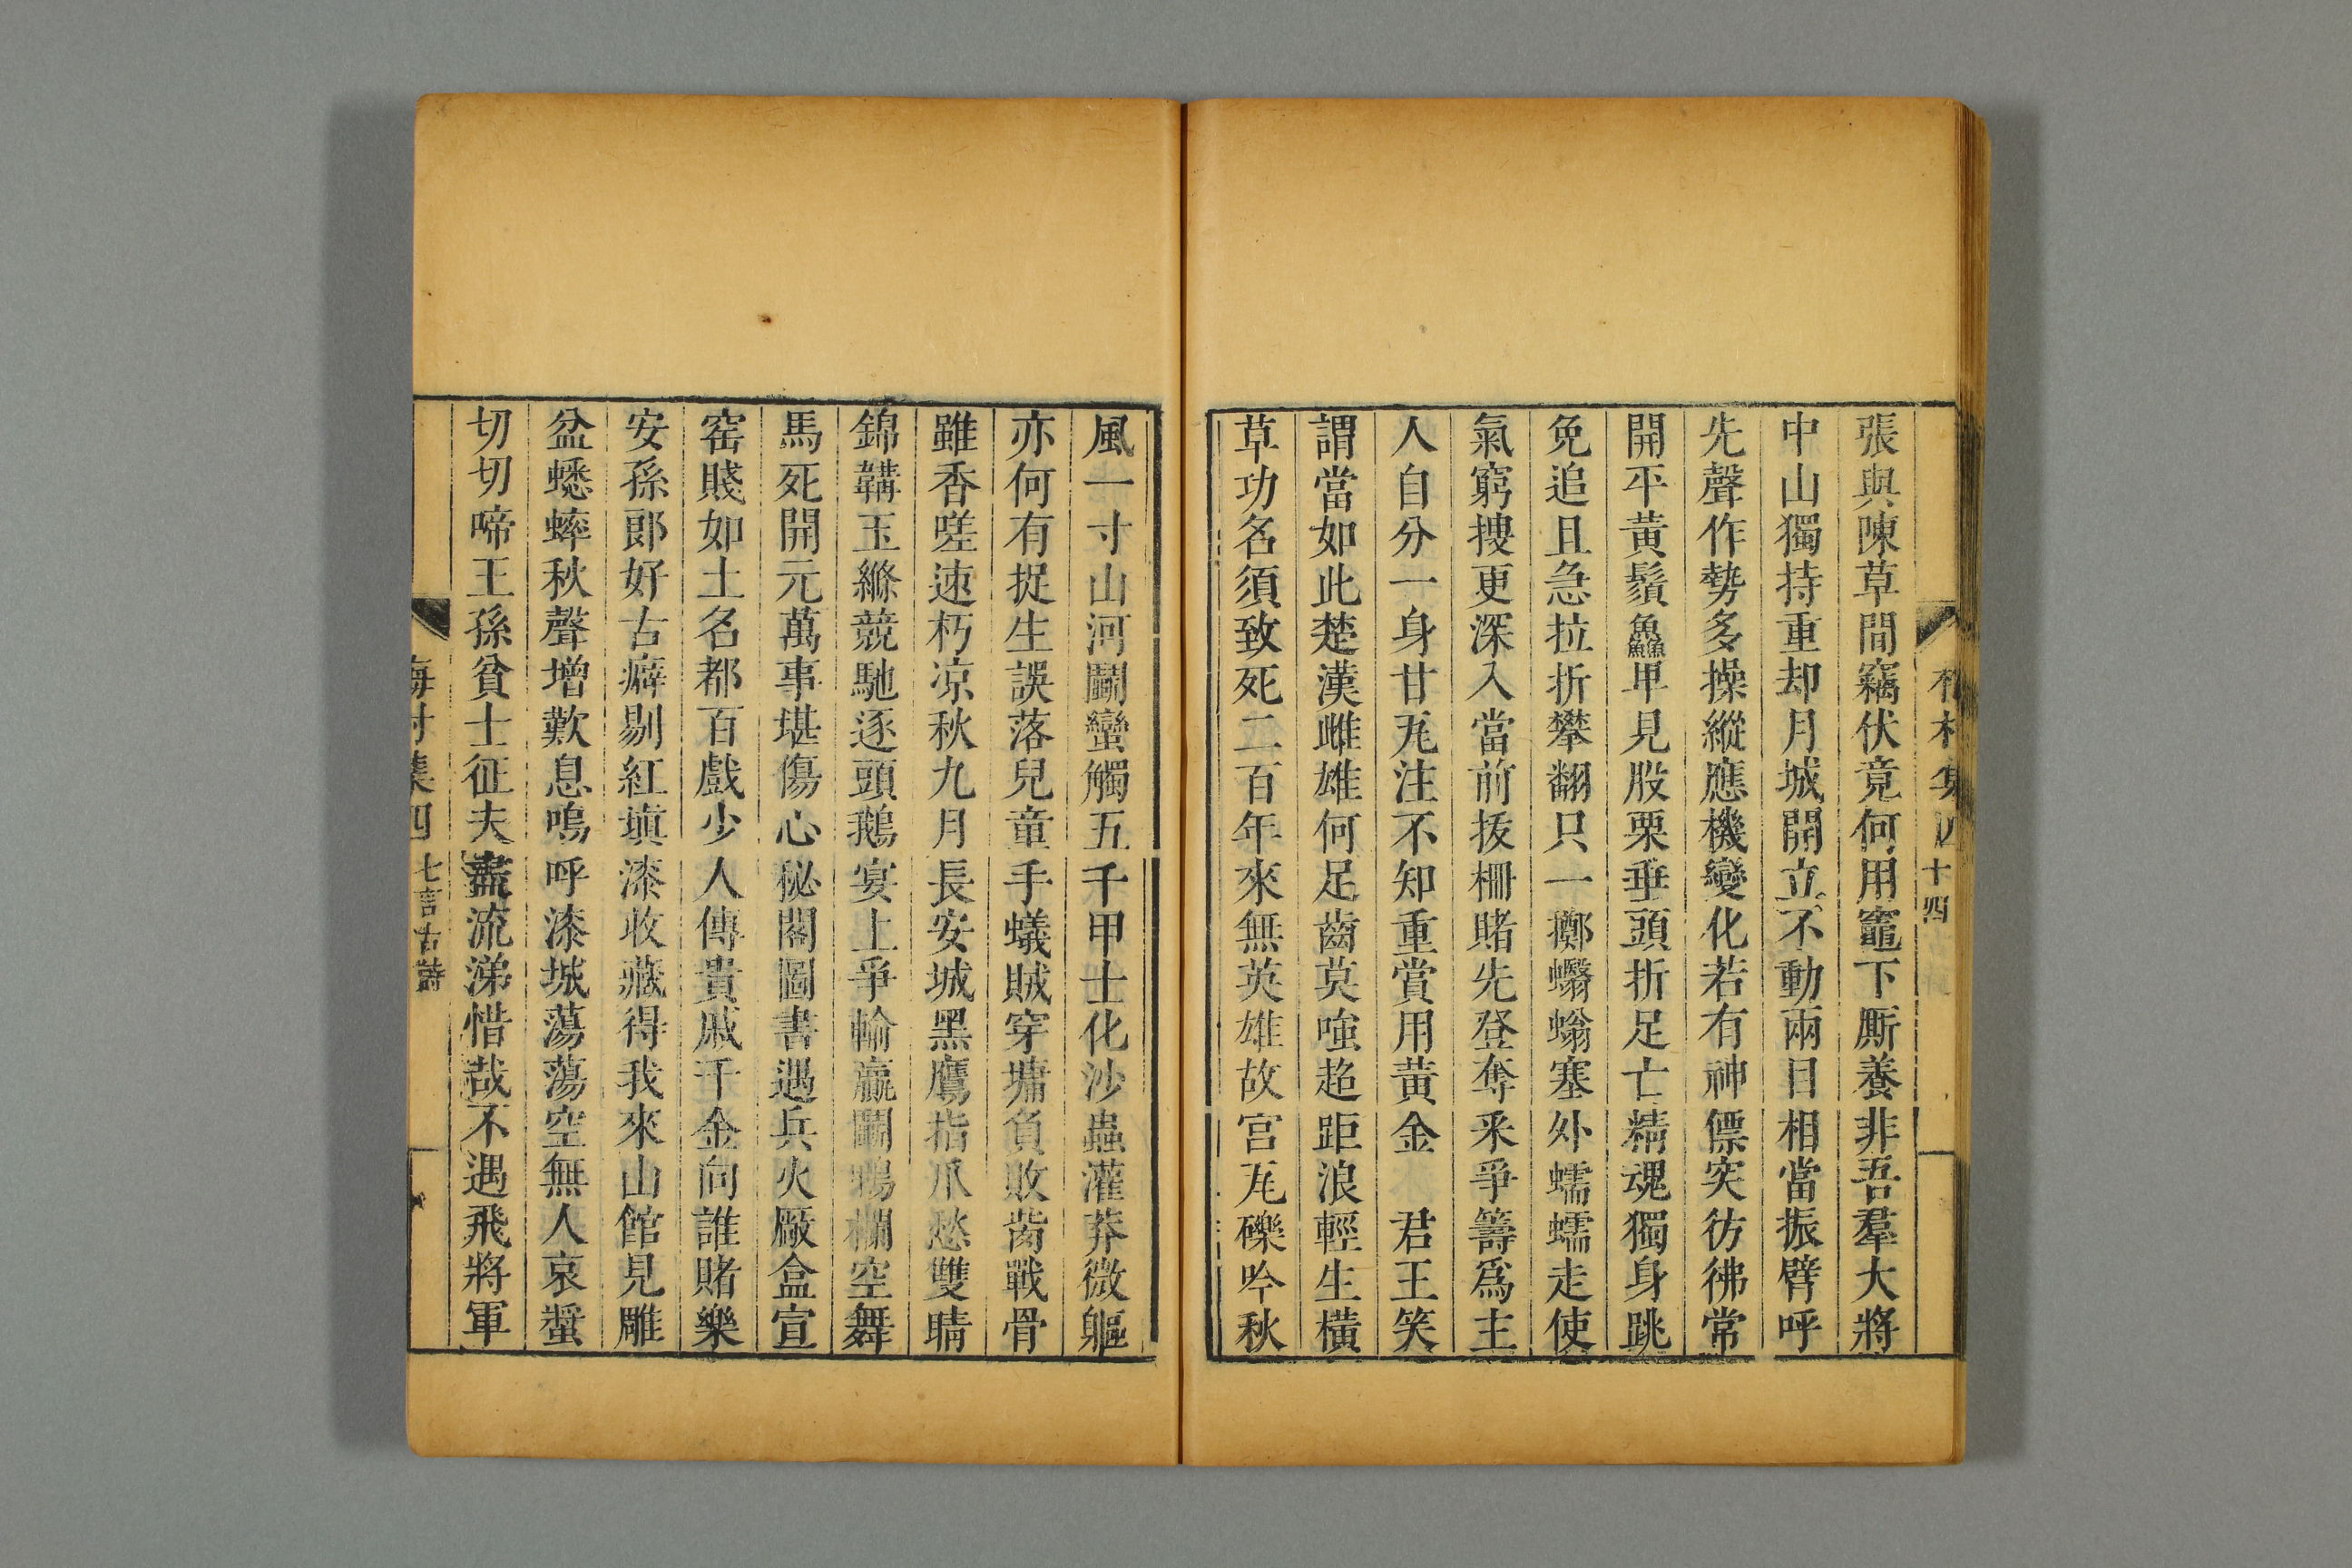 張與陳草間竊伏竟何用竈下厮養非吾羣大將
中山獨持重却月城開立不動兩目相當振臂呼
先聲作勢多操縱應機變化若有神僄突彷彿常
開平黃鬚鱻甲見股栗垂頭折足亡精魂獨身跳
免追且急拉折攀翻只一擲蠮螉塞外蠕蠕走使
氣窮搜更深入當前拔柵賭先登奪釆爭籌爲主
人自分一身甘瓦注不知重賞用黃金 君王笑
謂當如此楚漢雌雄何足齒莫嗤超距浪輕生橫
草功名須致死二百年來無英雄故宮瓦礫吟秋
風一寸山河鬭蠻觸五千甲士化沙蟲灌莽微軀
亦何有捉生誤落兒童手蟻賊穿墉負敗胔戰骨
雖香嗟速朽凉秋九月長安城黑鷹指爪愁雙睛
錦鞲玉縧競馳逐頭鵝宴上爭輸瀛鬭鴨欄空舞
馬死開元萬事堪傷心秘閣圖書遇兵火廠盒宣
窑賤如土名都百戲少人傳貴戚千金向誰賭樂
安孫郎好古癖剔紅塡漆收藏得我來山館見雕
盆蟋蟀秋聲增歎息嗚呼漆城蕩蕩空無人哀螿
切切啼王孫貧士征夫盡流涕惜哉不遇飛將軍
梅村集四 七言古詩
十四